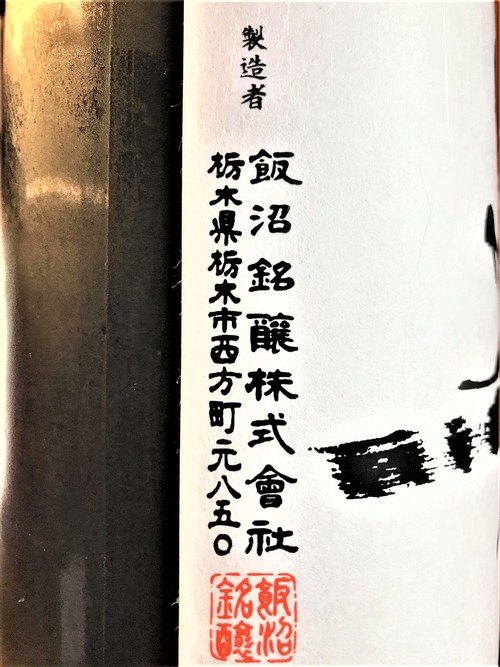 製造者
飯沼銘釀株式會社
栃木県栃木市西方町元八五〇
飯沼
銘釀